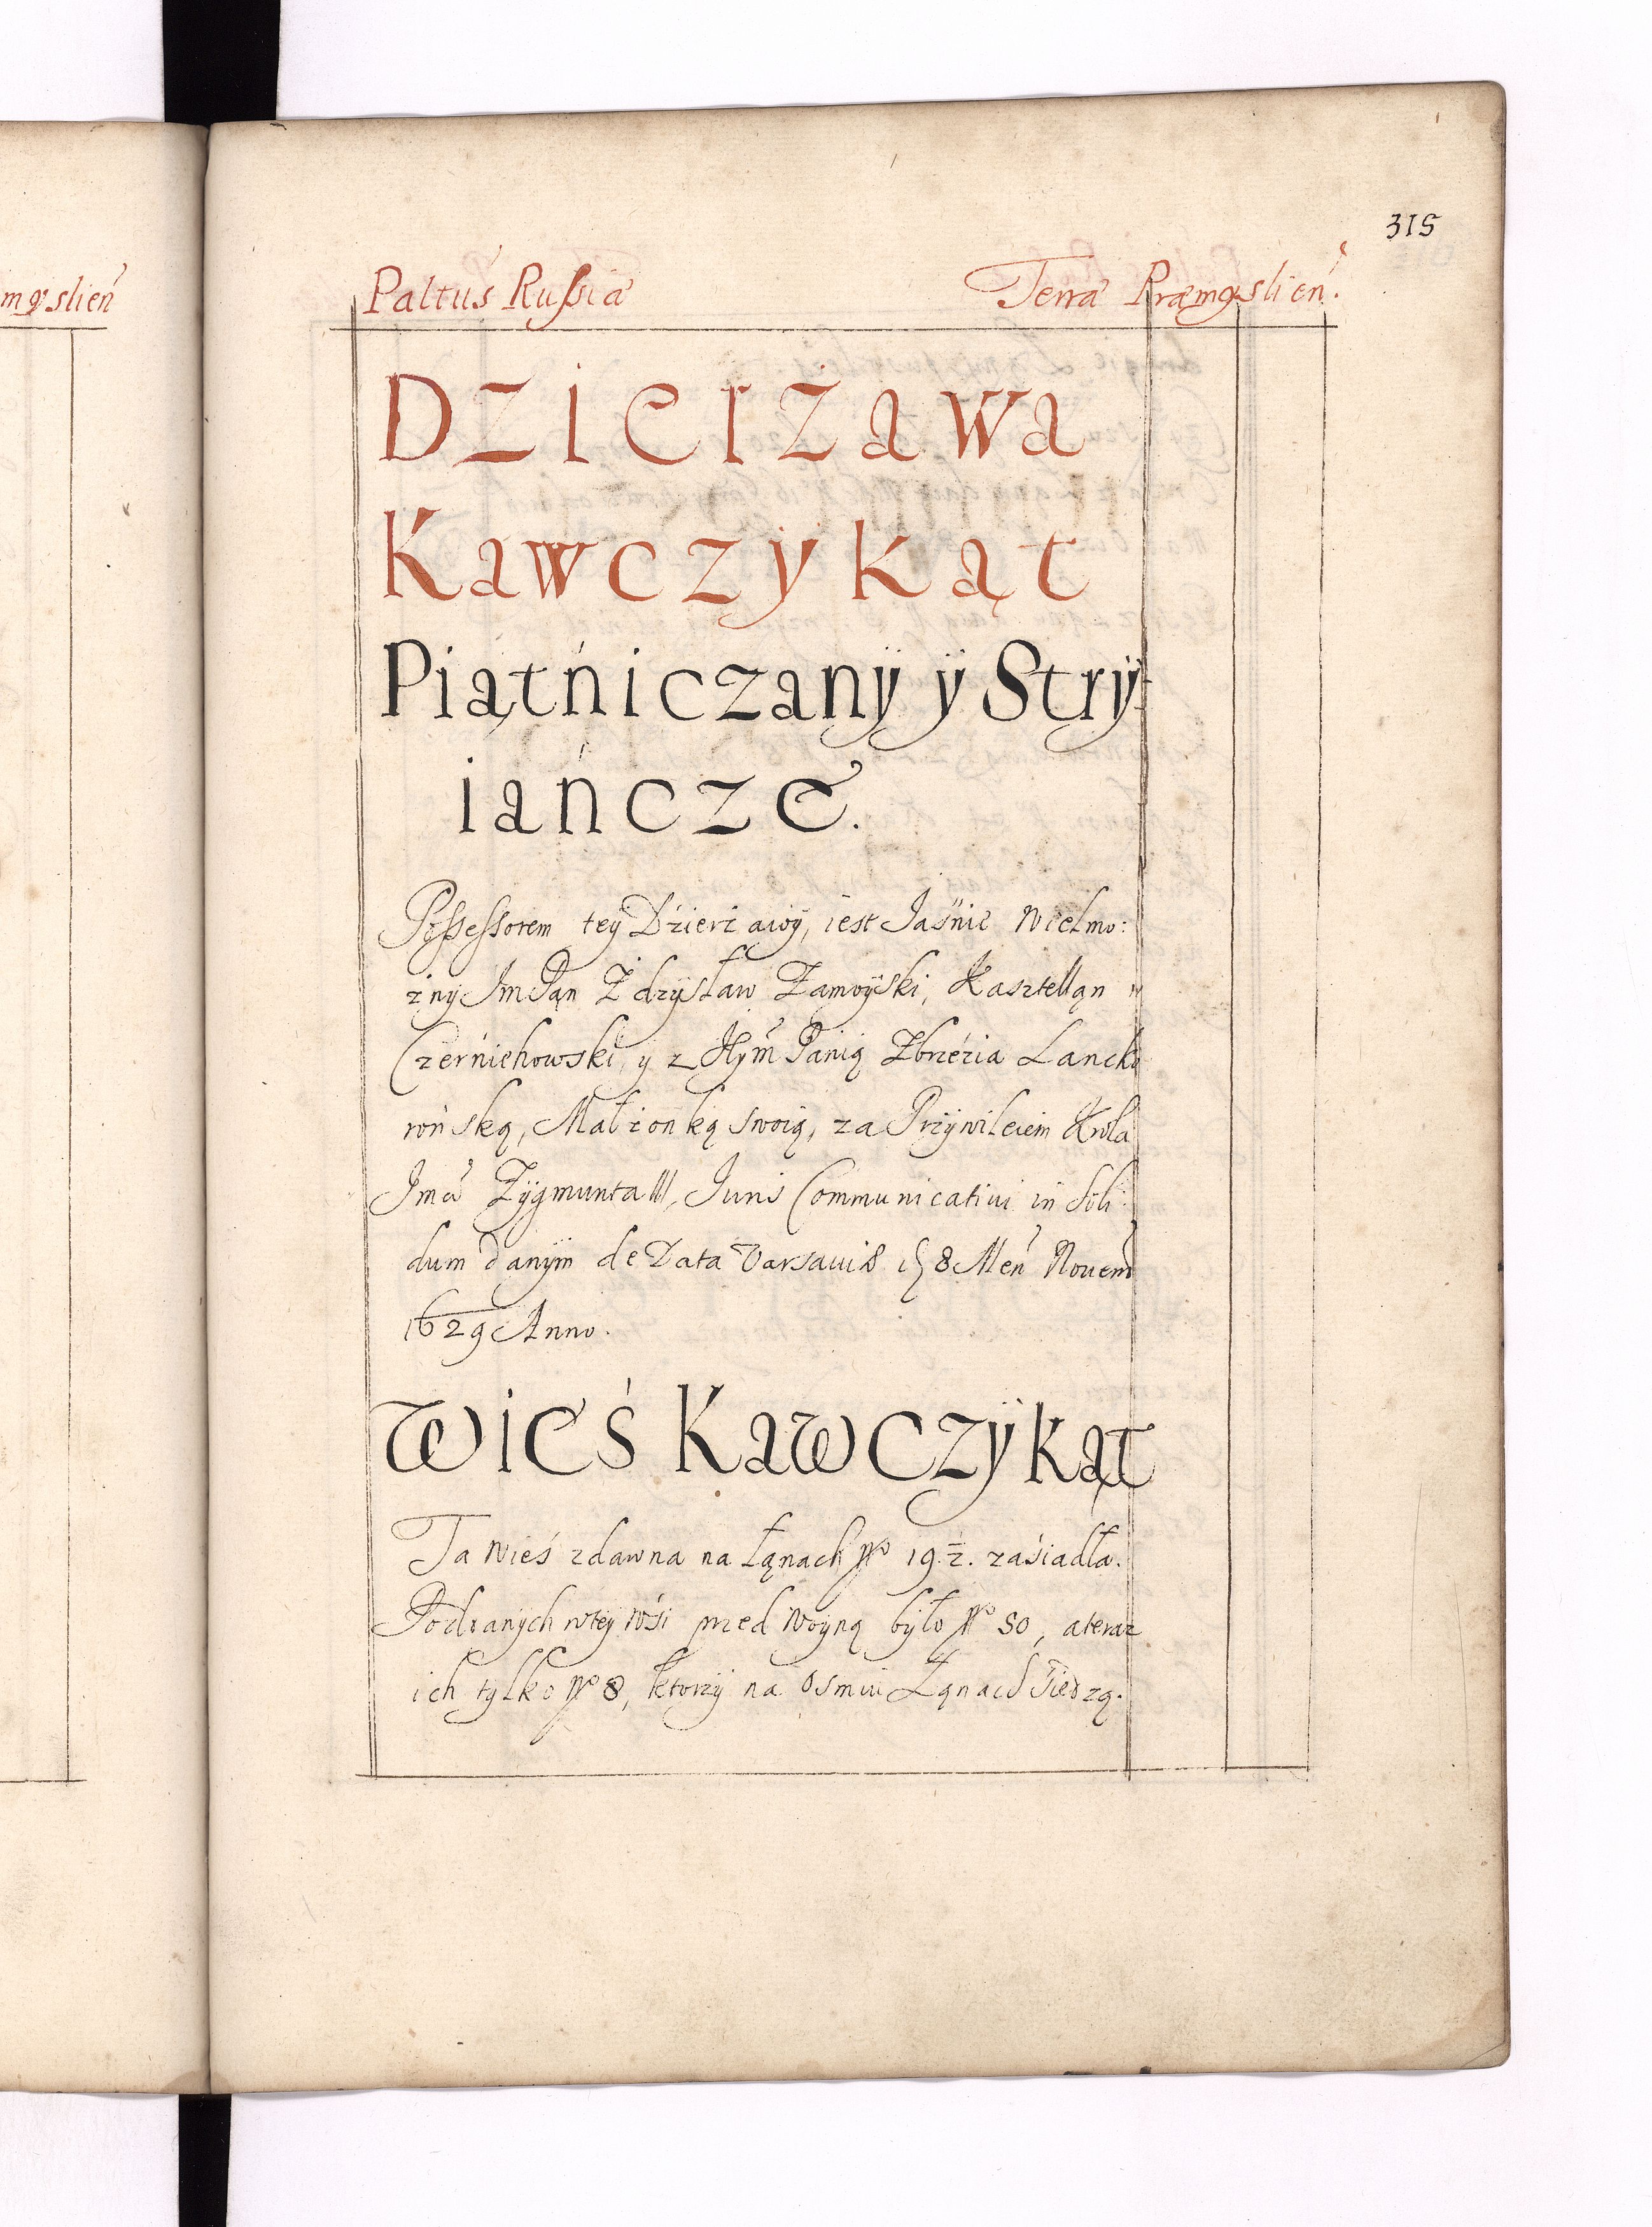 mÿslień
315
Paltûs Russiæ Terræ Præmÿslień.
Dzierżawa
Kawczÿkąt
Piątńiczanÿ ÿ Strÿ
iańcze.
Possessorem teÿ Dzierżawÿ, iest Jaśnie Wielmo:
żnÿ Im Pąn Zdzÿsław Zamoÿski, Kasztelląn
Czerńiehowski, ÿ z Panią Zbrzézia Lancko
rońską, Małżonką swoią, za Przÿwileiem Krola
Imći Zÿgmunta III, Juris Communicatiui in Soli
dum danÿm de Data Varsauiæ 8 Meń Nouem
1629 Anno.
Wieś Kawczÿkąt
Ta Wieś zdawna na Łąnach N° 19 ½. zaśiadła.
Poddanÿch wteÿ Wśi przed Woÿną bÿło N° 50, ateraz
ich tÿlko N° 8, ktorzÿ na Osmiu Łąnach śiedzą.